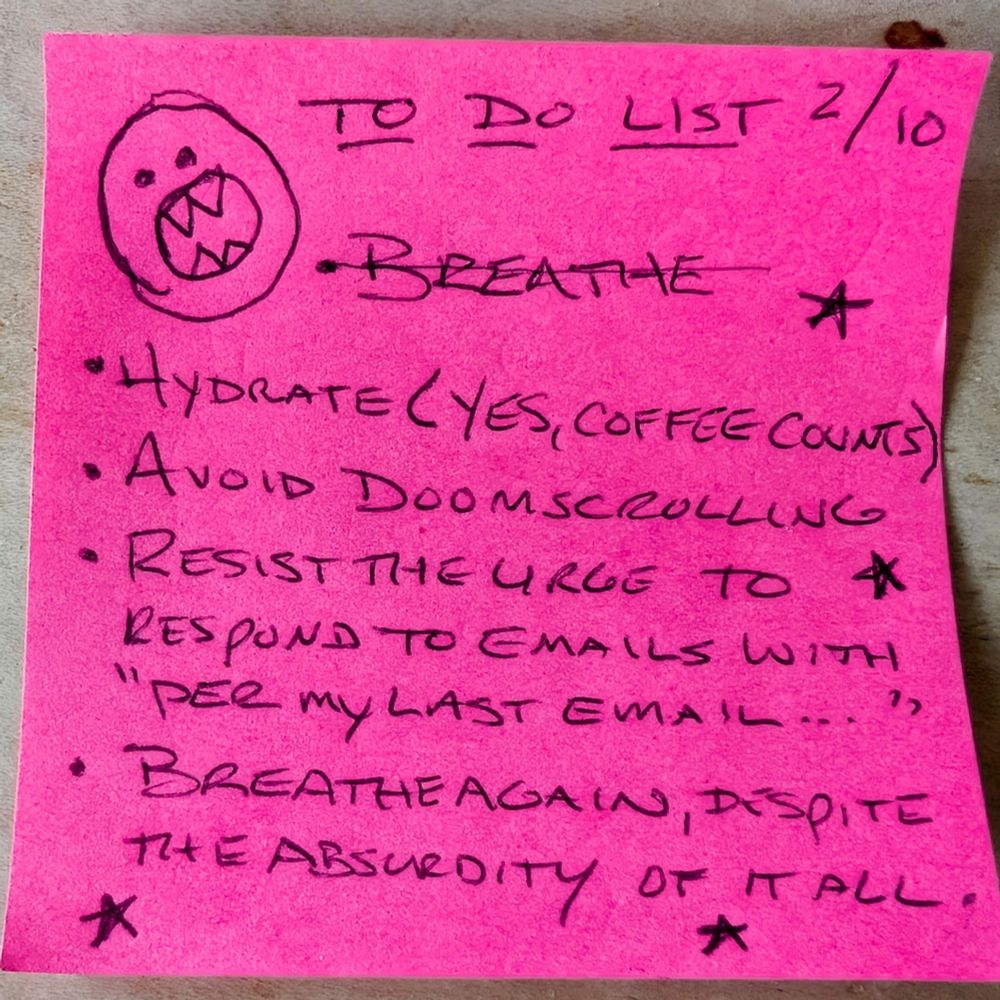 TO DO LIST 2/10
• BREATHE
• HYDRATE (YES, COFFEE COUNTS)
• AVOID DOOMSCROLLING
• RESIST THE URGE TO
RESPOND TO EMAILS WITH
"PER MY LAST EMAIL..."
• BREATHE AGAIN, DESPITE
THE ABSURDITY OF IT ALL.